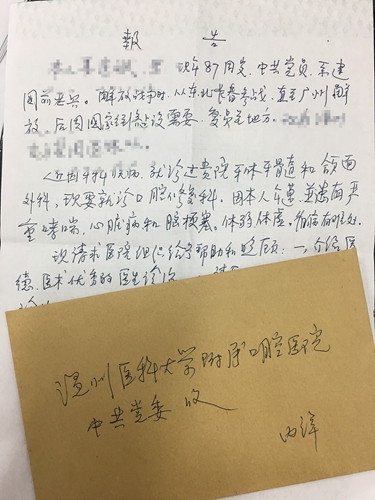 報 告
现年87周岁,中共党员,系建
国前老兵。解放战争时,从东北长春参战,直至广州解
放,后因国家经济建设需要,复员至地方。
近因牙科疾病,就诊过贵院牙体牙髓科和颌面
外科,现要就诊口腔修复科。因本人年迈,并患有严
重哮喘,心脏病和脑梗塞。体弱体虚。
议请求医院组织给予帮助和照顾:一、介绍医
德、医术优秀的医生诊治
温州医科大学附属口腔医院
中共党委 收
内详